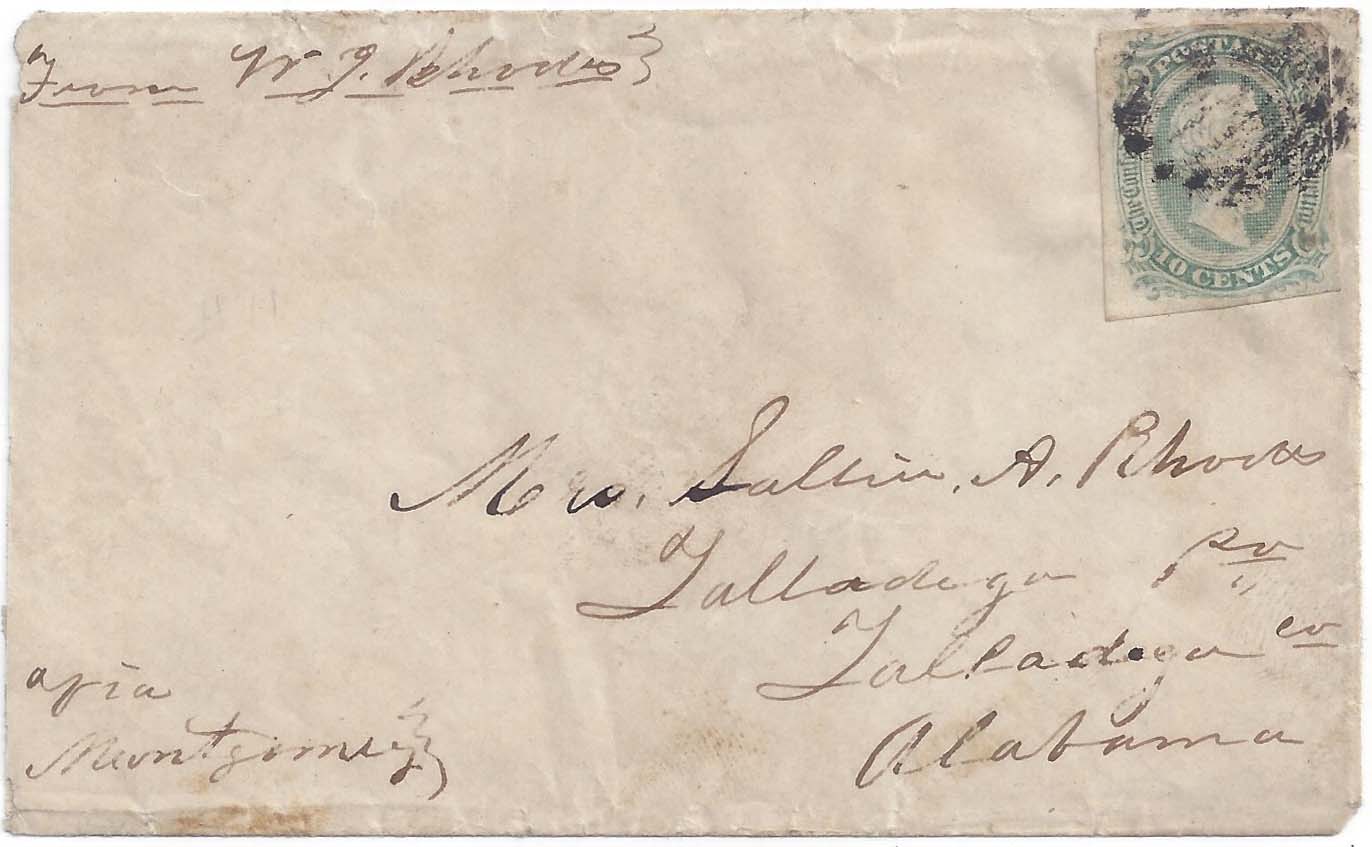 From W. J. Rhodes
POSTAGE
10 CENTS
Mrs. Sallie, A, Rhodes
Talladega Po
Talladega co
Alabama
via
Montgomery